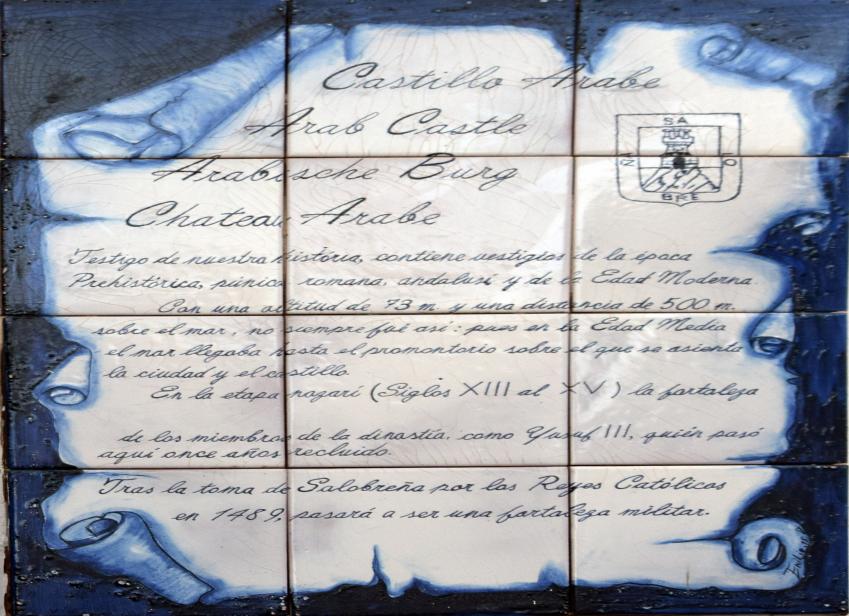 Castillo Arabe
Arab Castle
Arabische Burg
Chateau Arabe
SA
BRE
Testigo de nuestra historia, contiene vestigios de la época
Prehistórica, púnica, romana, andalusí y de la Edad Moderna.
Con una altitud de 73 m. y una distancia de 500 m.
sobre el mar, no siempre fué asi: pues en la Edad Media
el mar llegaba hasta el promontorio sobre el que se asienta
la ciudad y el castillo.
En la etapa nazarí (Siglos XIII al XV) la fortaleza
de los miembros de la dinastía, como Yusuf III, quién pasó
aquí once años recluido.
Tras la toma de Salobreña por los Reyes Católicos
en 1489, pasará a ser una fortaleza militar.